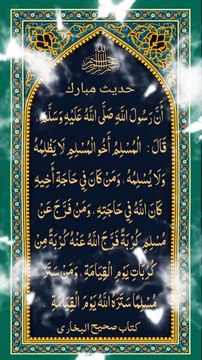 حديث مبارك
أَنَّ رَسُولَ اللَّهِ صَلَّى اللَّهُ عَلَيْهِ وَسَلَّمَ
قَالَ: الْمُسْلِمُ أَخُو الْمُسْلِمِ لَا يَظْلِمُهُ
وَلَا يُسْلِمُهُ، وَمَنْ كَانَ فِي حَاجَةِ أَخِيهِ
كَانَ اللَّهُ فِي حَاجَتِهِ، وَمَنْ فَرَّجَ عَنْ
مُسْلِمٍ كُرْبَةً فَرَّجَ اللَّهُ عَنْهُ كُرْبَةً مِنْ
كُرُبَاتِ يَوْمِ الْقِيَامَةِ، وَمَنْ سَتَرَ
مُسْلِمًا سَتَرَهُ اللَّهُ يَوْمَ الْقِيَامَةِ
كتاب صحيح البخاري